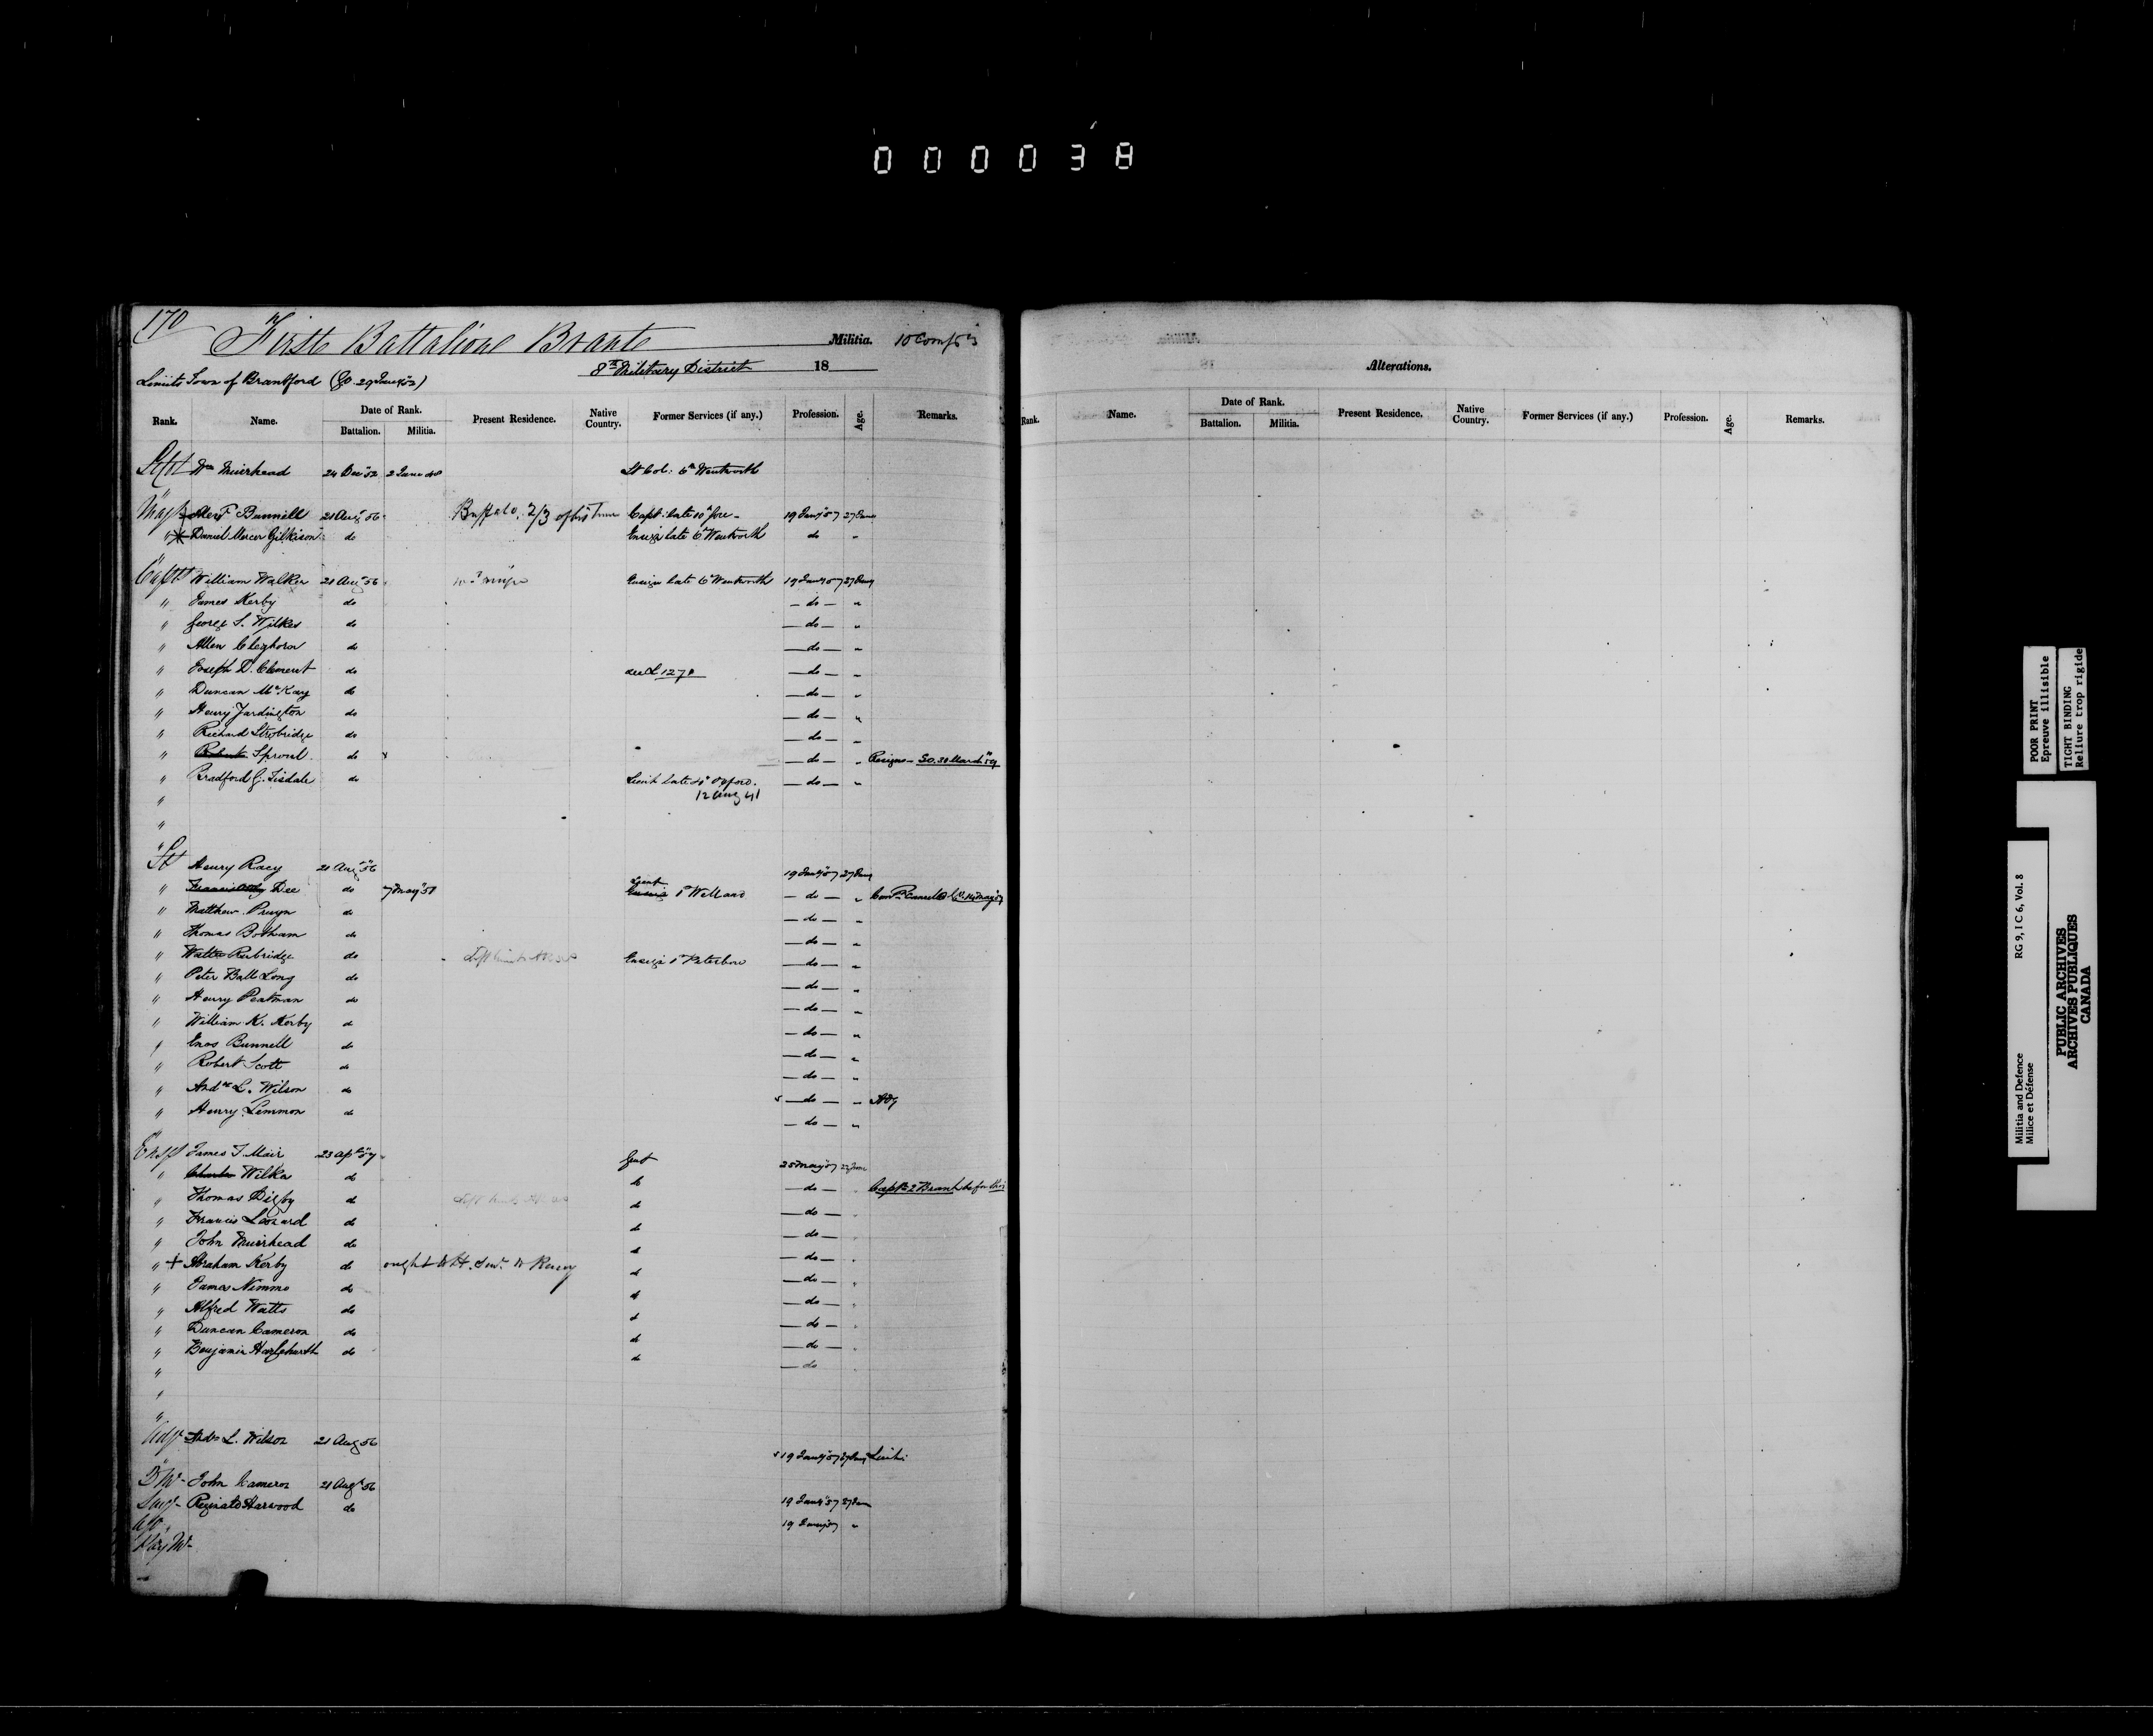 000038
170
First Battalion Brant Militia. 10 Comp's
8th Military District 18
Limits Town of Brantford (GO. 29 Jany 52)
Rank. Name. Date of Rank. Present Residence. Native Country. Former Services (if any.) Profession. Age. Remarks.
Battalion. Militia.
Wm Muirhead 24 Dec 52 2 June 48 Lt Col. 6th Wentworth
Bunnell 21 Aug 56 Buffalo, 2/3 of his time Capt. late 10th 19 Jany 57
" Daniel Mercer Gilkison do Ensign late 6th Wentworth do "
Capts William Walker 21 Aug 56 Ensign late 6th Wentworth 19 Jany 57 27 Jany
" James Kerby do — do — "
" George S. Wilkes do — do — "
" Allen Cleghorn do — do — "
" Joseph D. Clement do — do — "
" Duncan McKay do — do — "
" Henry Yardington do — do — "
" Richard Strobridge do — do — "
" Robert Sproul do — do — " Resigns - 30 March 59
" Bradford G. Tisdale do Lieut late Oxford. — do — "
12 Aug 41
"
"
"
Lt Henry Racy 21 Aug 56 19 Jany 57 27 Jany
" Dee do 7 May 58 Lieut Ensign 1st Welland — do — "
" Matthew Pruyn do — do — "
" Thomas Botham do — do — "
" Walter Rubridge do Left limits Ensign 1st Peterboro — do — "
" Peter Ball Long do — do — "
" Henry Peatman do — do — "
" William K. Kerby do — do — "
" Enos Bunnell do — do — "
" Robert Scott do — do — "
" Andw L. Wilson do — do — " Adj
" Henry Lemmon do — do — "
Ensgs James T. Mair 23 Apl 57 Gent 25 May 57
" Charles Wilkes do do — do — Capt 2 Brant
" Thomas Digby do Left limits do — do —
" Francis Leonard do do — do —
" John Muirhead do do — do —
" + Abraham Kerby do do — do —
" James Nimmo do do — do —
" Alfred Watts do do — do —
" Duncan Cameron do do — do —
" Benjamin do do — do
"
"
"
Adjt Andw L. Wilson 21 Aug 56 19 Jany 57 27 Jany Lieut:
John Cameron 21 Aug 56 19 Jany 57
Surg- Harwood do 19 Jany 57 "
Pay Mr-
Alterations.
Rank. Name. Date of Rank. Present Residence. Native Country. Former Services (if any.) Profession. Age. Remarks.
Battalion. Militia.
POOR PRINT
Epreuve illisible
TIGHT BINDING
Reliure trop rigide
Militia and Defence
Milice et Défense
RG 9, I C 6, Vol. 8
PUBLIC ARCHIVES
ARCHIVES PUBLIQUES
CANADA